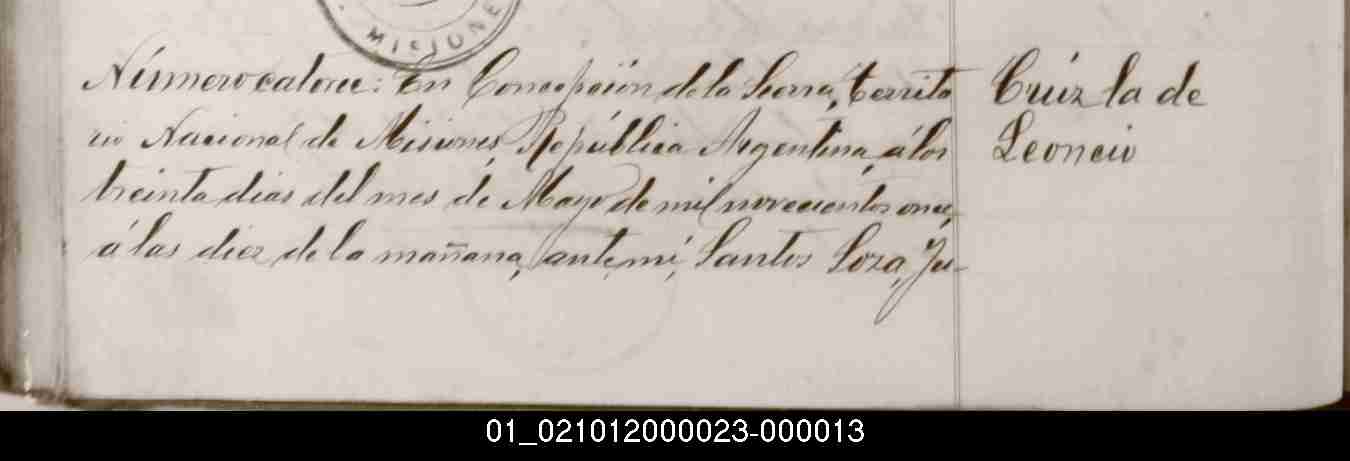 MISIONE
Número catorce: En Concepción de la Sierra, Territo
rio Nacional de Misiones, República Argentina, á los
treinta dias del mes de Mayo de mil novecientos once,
á las diez de la mañana, ante mí, Santos Loza, Ju-
Crúz la de
Leoncio
01_021012000023-000013